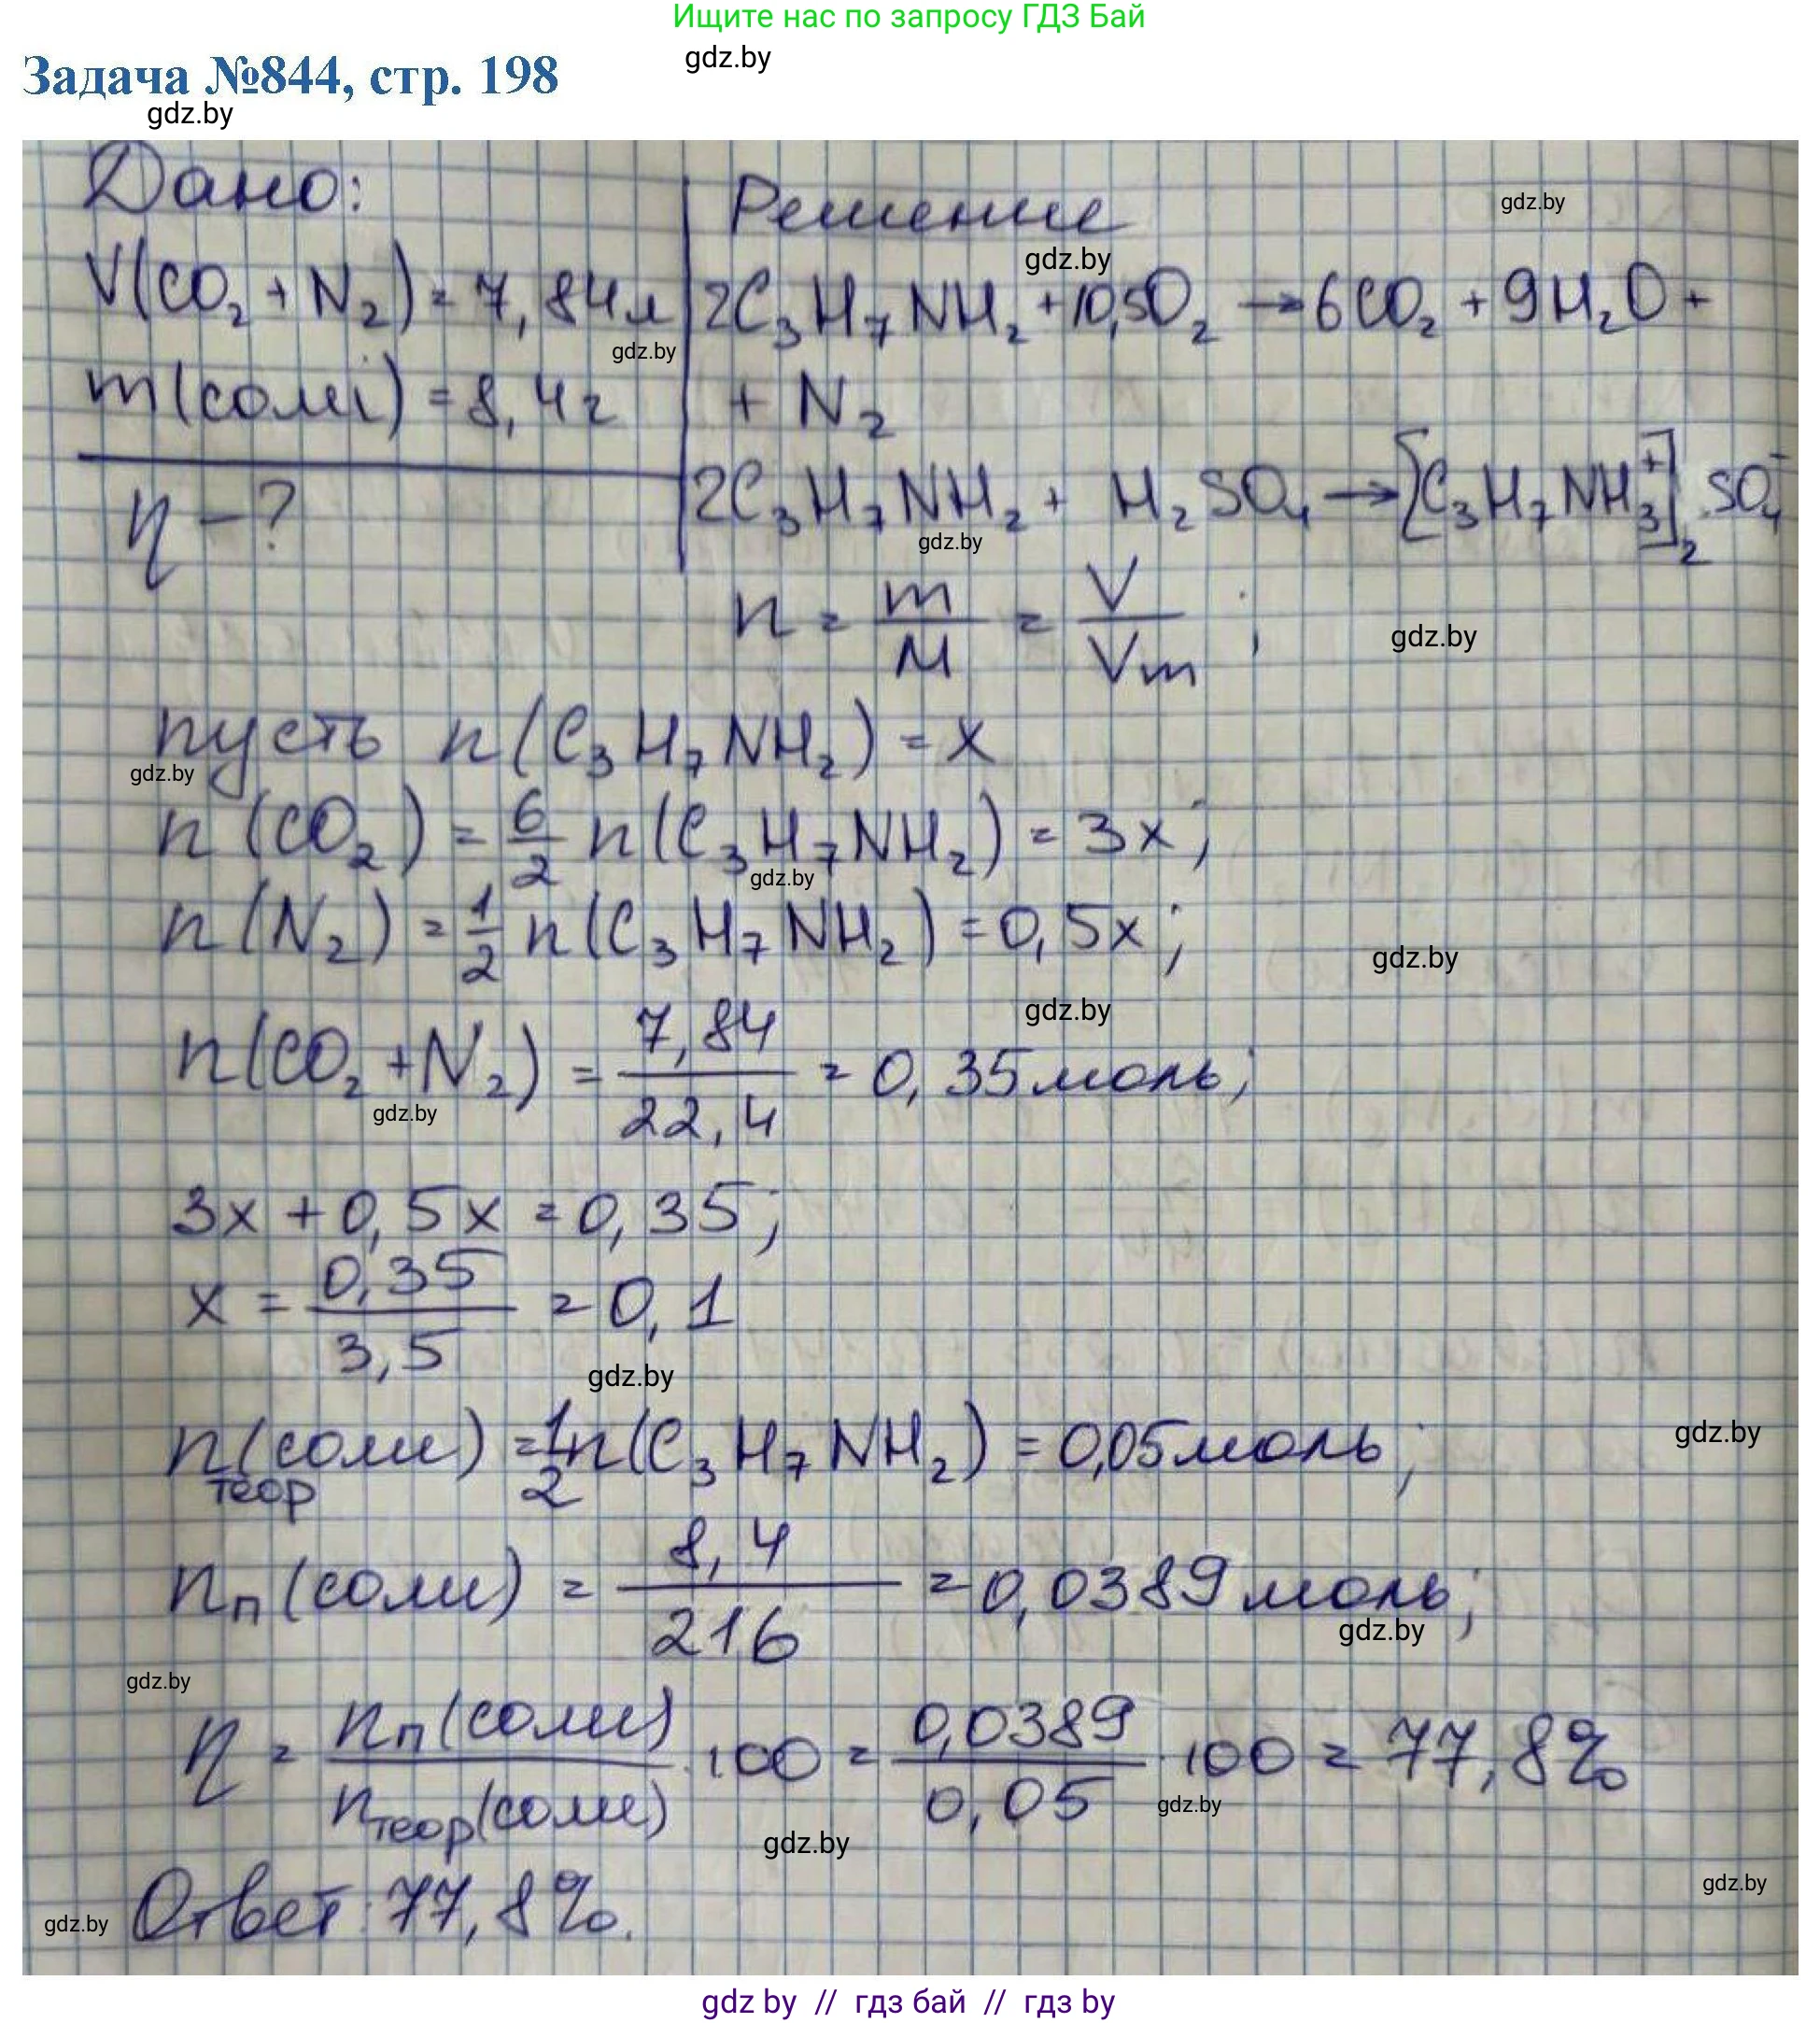 Ищите нас по запросу ГДЗ Бай
gdz.by
Задача №844, стр. 198
gdz.by
Дано:
Решение
gdz.by
gdz.by
V(CO₂ + N₂) = 7,84л
2C₃H₇NH₂ + 10,5O₂ → 6CO₂ + 9H₂O +
gdz.by
m(соли) = 8,4г
+ N₂
η - ?
2C₃H₇NH₂ + H₂SO₄ → [C₃H₇NH₃⁺]₂ SO₄⁻
gdz.by
n = m/M = V/Vm ;
gdz.by
пусть n(C₃H₇NH₂) = x
gdz.by
n(CO₂) = 6/2 n(C₃H₇NH₂) = 3x;
gdz.by
n(N₂) = 1/2 n(C₃H₇NH₂) = 0,5x;
gdz.by
gdz.by
n(CO₂ + N₂) = 7,84/22,4 = 0,35моль;
gdz.by
3x + 0,5x = 0,35;
x = 0,35/3,5 = 0,1
gdz.by
n теор (соли) = 1/2 n(C₃H₇NH₂) = 0,05моль;
gdz.by
nп(соли) = 8,4/216 = 0,0389моль;
gdz.by
gdz.by
η = nп(соли)/nтеор(соли) · 100 = 0,0389/0,05 · 100 = 77,8%
gdz.by
gdz.by
gdz.by
Ответ: 77,8%.
gdz.by
gdz by // гдз бай // гдз by